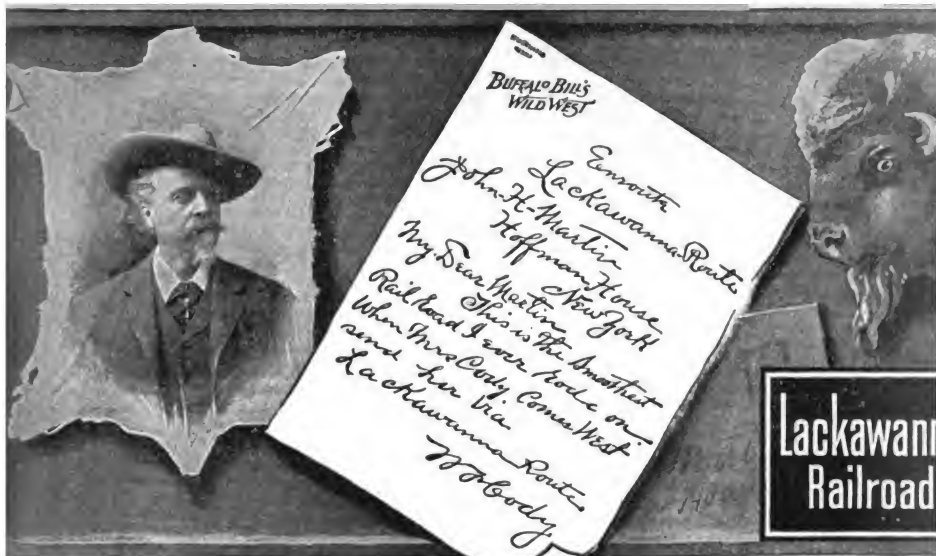 BUFFALO BILL'S
WILD WEST
Enroute
Lackawanna Route
John-H-Martin
Hoffman House
New York
My Dear Martin
This is the Smoothest
Rail Road I ever rode on
When Mrs Cody Comes West
send her via
Lackawanna Route
W F Cody
Lackawann
Railroad